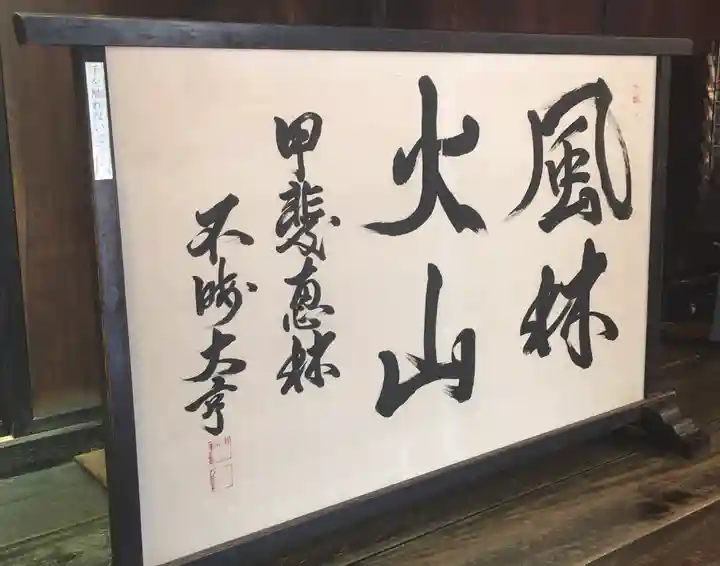 風林
火山
甲斐恵林
不晴大亨